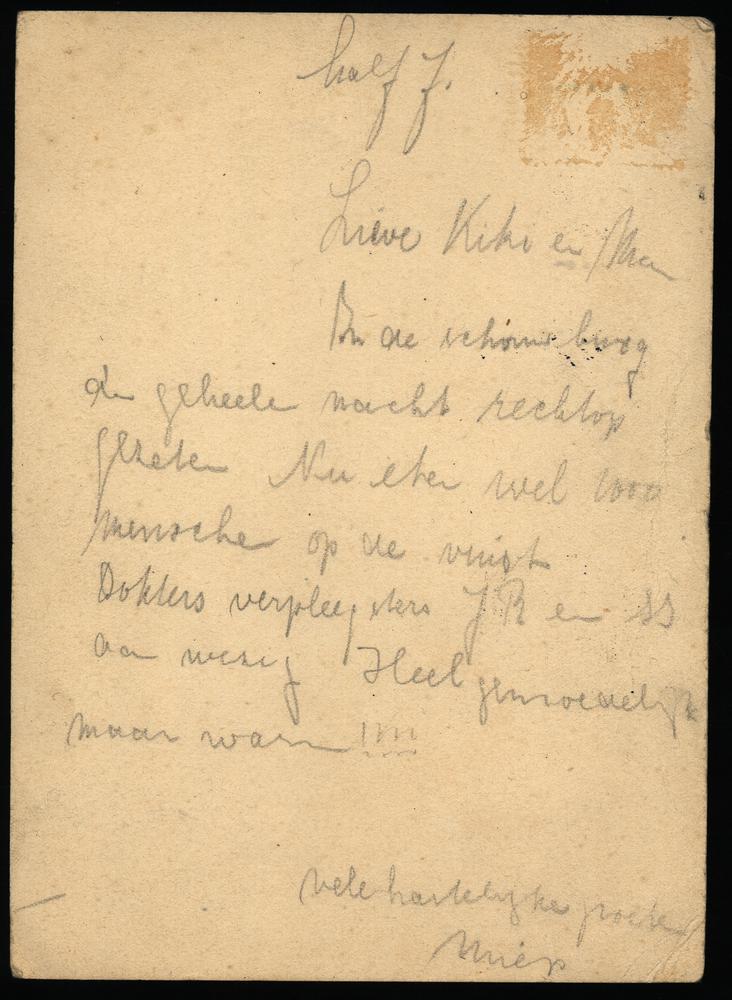 half 7.
Lieve Kiki en Man
In de schouwburg
de geheele nacht rechtop
gezeten Nu eten wel 1000
mensche op de
Dokters verpleegsters J R en SS
aan wezig Heel gemoedelijk
maar warm !!!!
vele hartelijke groete
Miep